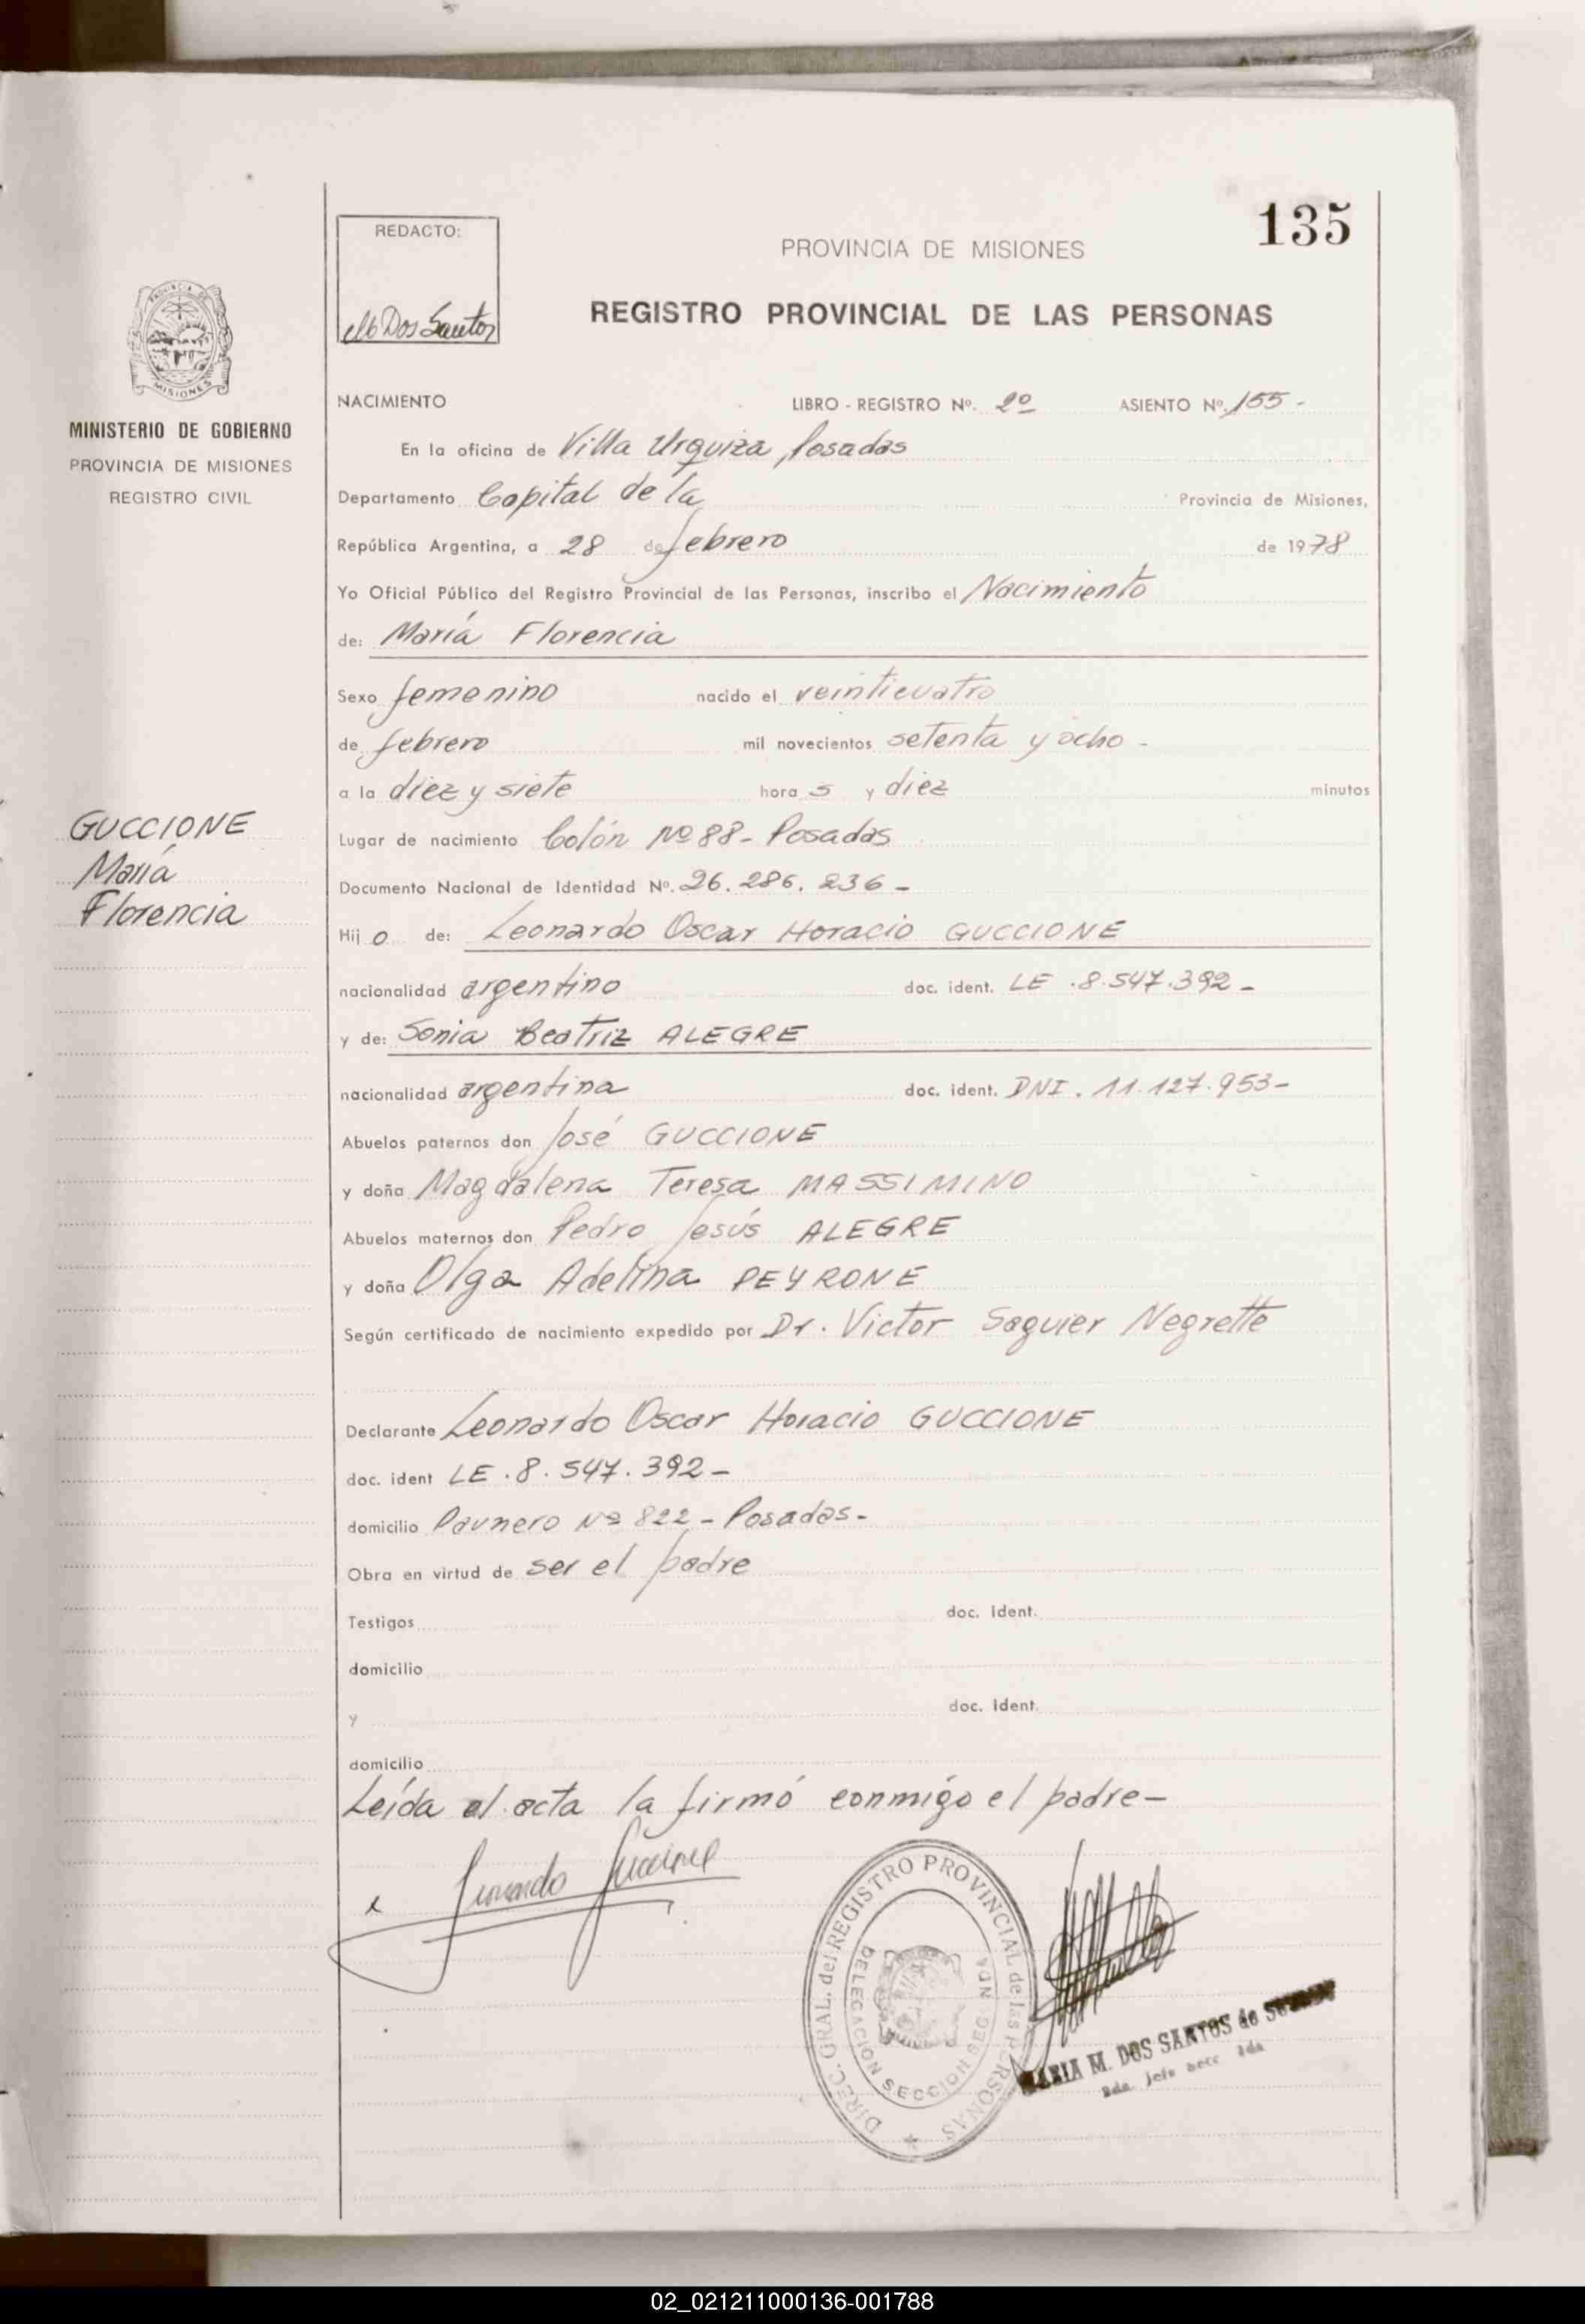 135
REDACTO:
PROVINCIA DE MISIONES
Dos Santos
REGISTRO PROVINCIAL DE LAS PERSONAS
PROVINCIA DE MISIONES
MINISTERIO DE GOBIERNO
PROVINCIA DE MISIONES
REGISTRO CIVIL
NACIMIENTO LIBRO - REGISTRO Nº. 2º ASIENTO Nº. 155 -
En la oficina de Villa Urquiza, Posadas
Departamento Capital de la Provincia de Misiones,
República Argentina, a 28 de febrero de 1978
Yo Oficial Público del Registro Provincial de las Personas, inscribo el Nacimiento
de: María Florencia
Sexo femenino nacido el veinticuatro
de febrero mil novecientos setenta y ocho -
a la diez y siete hora s y diez minutos
GUCCIONE
María
Florencia
Lugar de nacimiento Colón Nº 88 - Posadas
Documento Nacional de Identidad Nº. 26.286.236 -
Hij o de: Leonardo Oscar Horacio GUCCIONE
nacionalidad argentino doc. ident. LE .8.547.392 -
y de: Sonia Beatriz ALEGRE
nacionalidad argentina doc. ident. DNI . 11.127.953 -
Abuelos paternos don José GUCCIONE
y doña Magdalena Teresa MASSIMINO
Abuelos maternos don Pedro Jesús ALEGRE
y doña Olga Adelina PEYRONE
Según certificado de nacimiento expedido por Dr. Victor Saguier Negrette
Declarante Leonardo Oscar Horacio GUCCIONE
doc. ident LE .8.547.392 -
domicilio Paunero Nº 822 - Posadas -
Obra en virtud de ser el padre
Testigos doc. ident.
domicilio
y doc. ident.
domicilio
Leída el acta la firmó conmigo el padre -
Leonardo Guccione
DIREC. GRAL. del REGISTRO PROVINCIAL de las PERSONAS
DELEGACION SECCION SEG NDA
MARIA M. DOS SANTOS de
jefe secc 2da
02_021211000136-001788